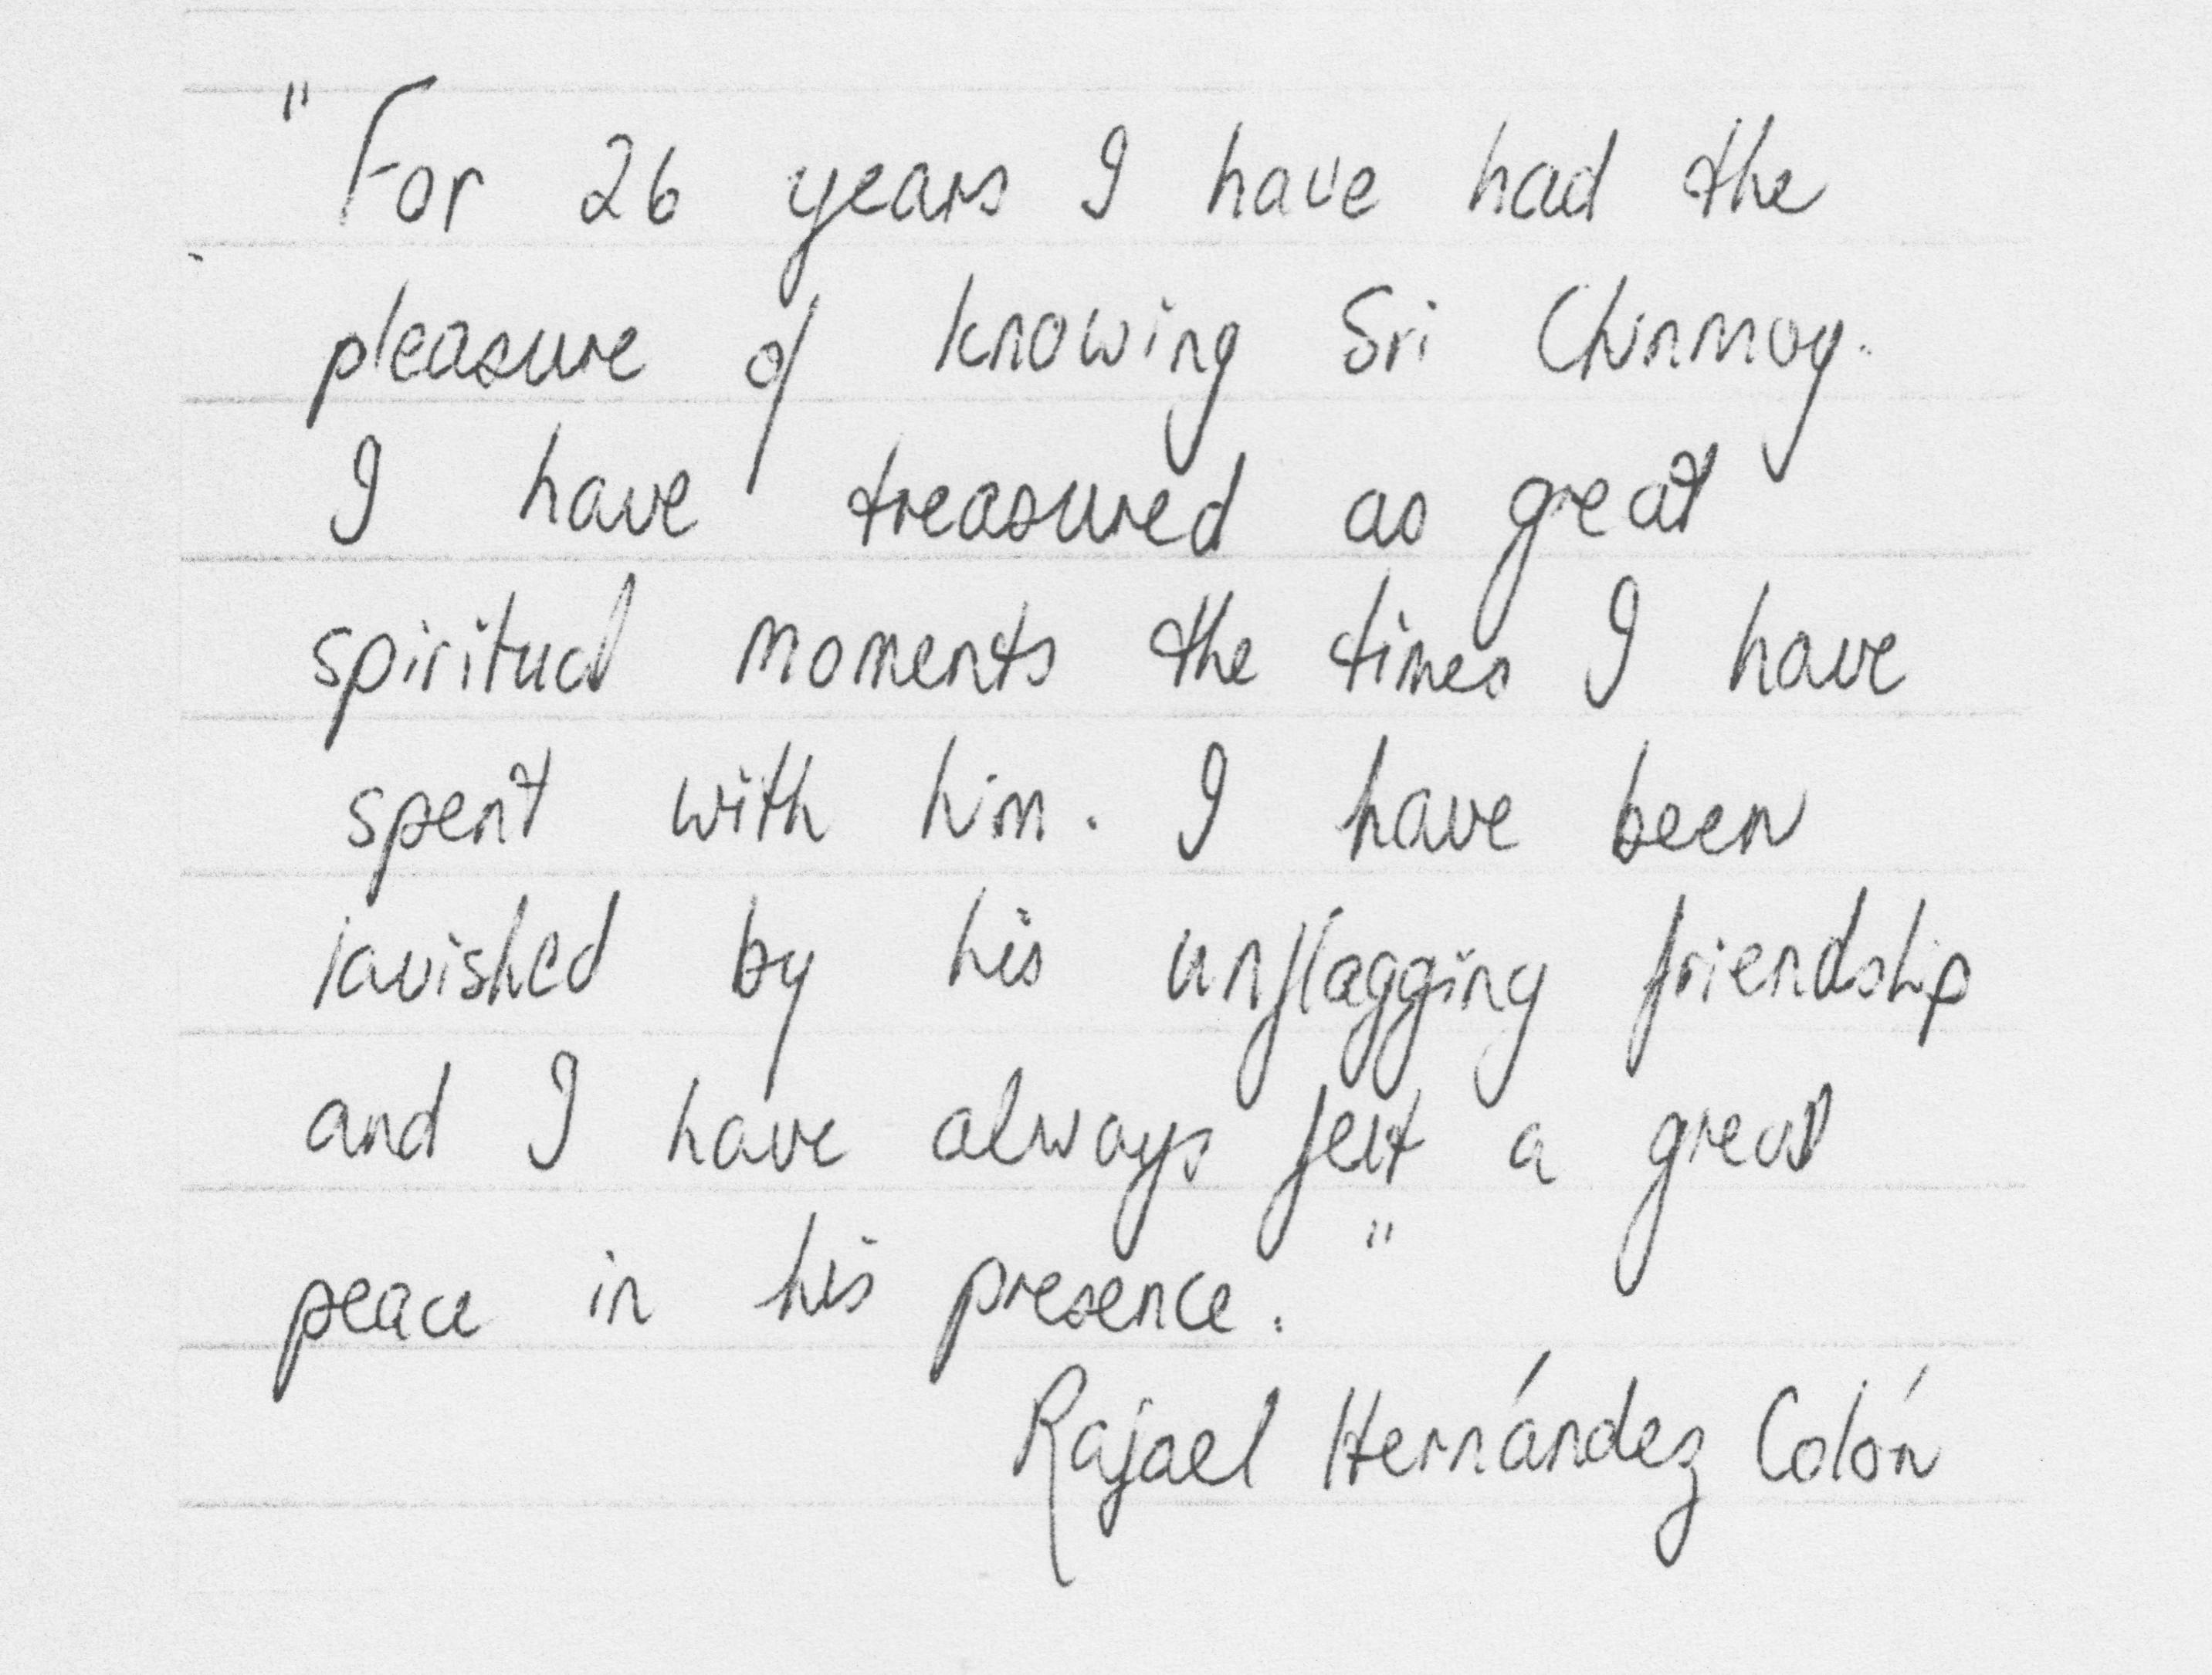 "For 26 years I have had the
pleasure of knowing Sri Chinmoy.
I have treasured as great
spiritual moments the times I have
spent with him. I have been
lavished by his unflagging friendship
and I have always felt a great
peace in his presence."
Rafael Hernández Colón